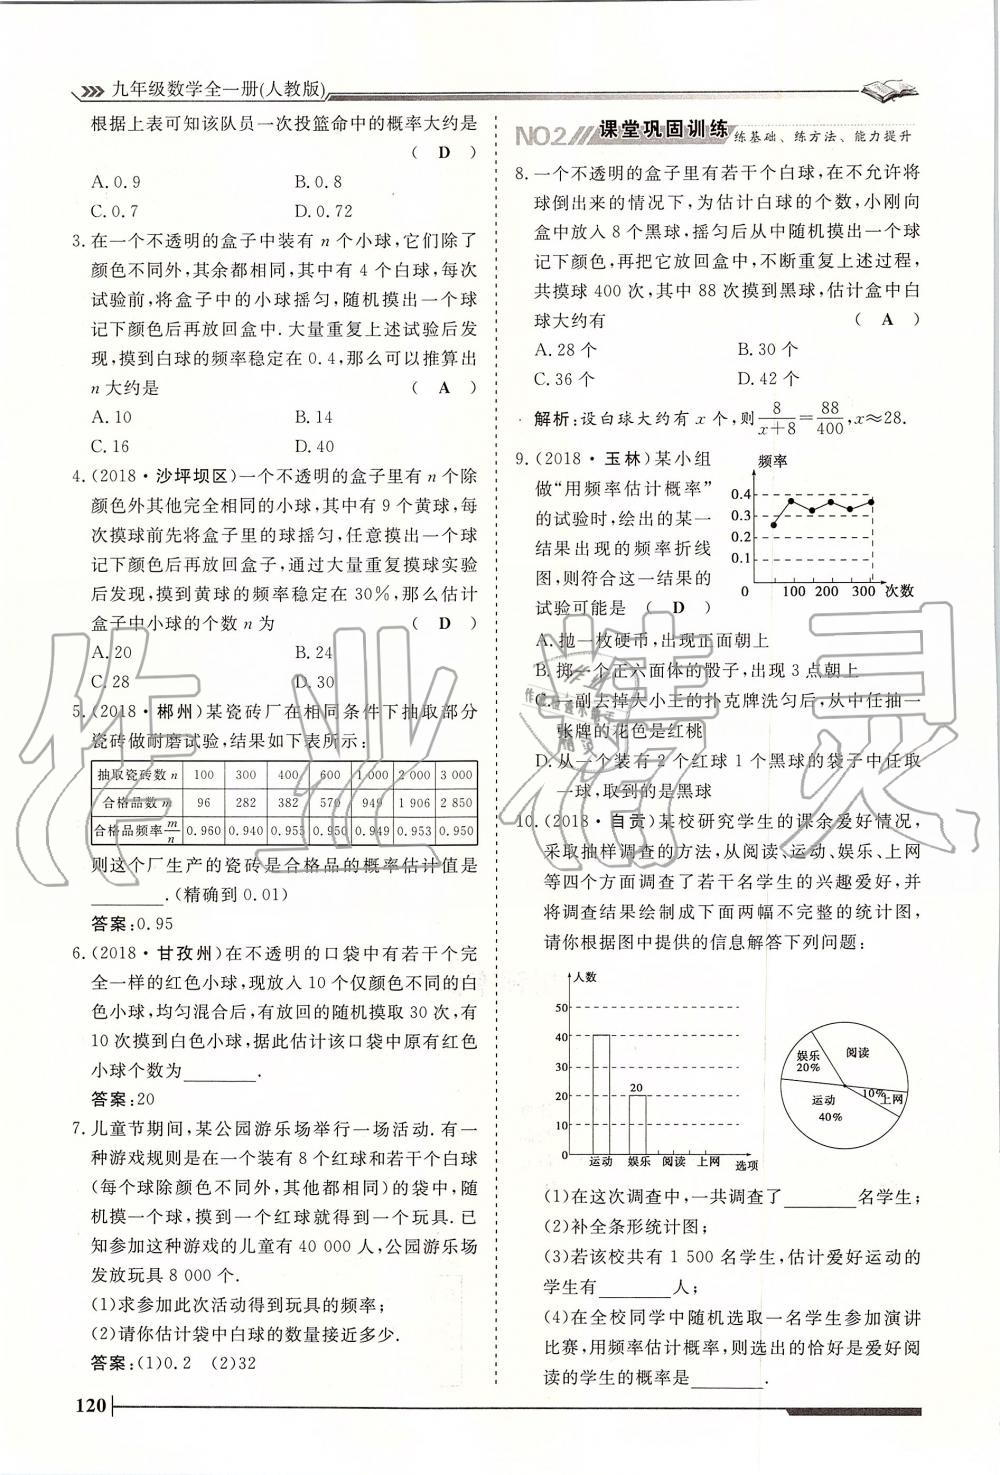 九年级数学全一册(人教版)
根据上表可知该队员一次投篮命中的概率大约是
( D )
A. 0.9 B. 0.8
C. 0.7 D. 0.72
3. 在一个不透明的盒子中装有 n 个小球,它们除了
颜色不同外,其余都相同,其中有 4 个白球,每次
试验前,将盒子中的小球摇匀,随机摸出一个球
记下颜色后再放回盒中. 大量重复上述试验后发
现,摸到白球的频率稳定在 0.4,那么可以推算出
n 大约是 ( A )
A. 10 B. 14
C. 16 D. 40
4. (2018·沙坪坝区)一个不透明的盒子里有 n 个除
颜色外其他完全相同的小球,其中有 9 个黄球,每
次摸球前先将盒子里的球摇匀,任意摸出一个球
记下颜色后再放回盒子,通过大量重复摸球实验
后发现,摸到黄球的频率稳定在 30%,那么估计
盒子中小球的个数 n 为 ( D )
A. 20 B. 24
C. 28 D. 30
5. (2018·郴州)某瓷砖厂在相同条件下抽取部分
瓷砖做耐磨试验,结果如下表所示:
抽取瓷砖数 n 100 300 400 600 1 000 2 000 3 000
合格品数 m 96 282 382 570 949 1 906 2 850
合格品频率 m/n 0.960 0.940 0.955 0.950 0.949 0.953 0.950
则这个厂生产的瓷砖是合格品的概率估计值是
______.(精确到 0.01)
答案:0.95
6. (2018·甘孜州)在不透明的口袋中有若干个完
全一样的红色小球,现放入 10 个仅颜色不同的白
色小球,均匀混合后,有放回的随机摸取 30 次,有
10 次摸到白色小球,据此估计该口袋中原有红色
小球个数为______.
答案:20
7. 儿童节期间,某公园游乐场举行一场活动. 有一
种游戏规则是在一个装有 8 个红球和若干个白球
(每个球除颜色不同外,其他都相同)的袋中,随
机摸一个球,摸到一个红球就得到一个玩具. 已
知参加这种游戏的儿童有 40 000 人,公园游乐场
发放玩具 8 000 个.
(1)求参加此次活动得到玩具的频率;
(2)请你估计袋中白球的数量接近多少.
答案:(1)0.2 (2)32
120
NO.2 课堂巩固训练 练基础、练方法、能力提升
8. 一个不透明的盒子里有若干个白球,在不允许将
球倒出来的情况下,为估计白球的个数,小刚向
盒中放入 8 个黑球,摇匀后从中随机摸出一个球
记下颜色,再把它放回盒中,不断重复上述过程,
共摸球 400 次,其中 88 次摸到黑球,估计盒中白
球大约有 ( A )
A. 28 个 B. 30 个
C. 36 个 D. 42 个
解析:设白球大约有 x 个,则 8/(x+8)=88/400,x≈28.
9. (2018·玉林)某小组
做“用频率估计概率”
的试验时,绘出的某一
结果出现的频率折线
图,则符合这一结果的
试验可能是 ( D )
频率
0.4
0.3
0.2
0.1
0 100 200 300 次数
A. 抛一枚硬币,出现正面朝上
B. 掷一个正六面体的骰子,出现 3 点朝上
C. 一副去掉大小王的扑克牌洗匀后,从中任抽一
张牌的花色是红桃
D. 从一个装有 2 个红球 1 个黑球的袋子中任取
一球,取到的是黑球
10. (2018·自贡)某校研究学生的课余爱好情况,
采取抽样调查的方法,从阅读、运动、娱乐、上网
等四个方面调查了若干名学生的兴趣爱好,并
将调查结果绘制成下面两幅不完整的统计图,
请你根据图中提供的信息解答下列问题:
人数
50
40
30
20
10
0
20
运动 娱乐 阅读 上网 选项
娱乐 20%
阅读
10% 上网
运动 40%
(1)在这次调查中,一共调查了______名学生;
(2)补全条形统计图;
(3)若该校共有 1 500 名学生,估计爱好运动的
学生有______人;
(4)在全校同学中随机选取一名学生参加演讲
比赛,用频率估计概率,则选出的恰好是爱好阅
读的学生的概率是______.
作业精灵